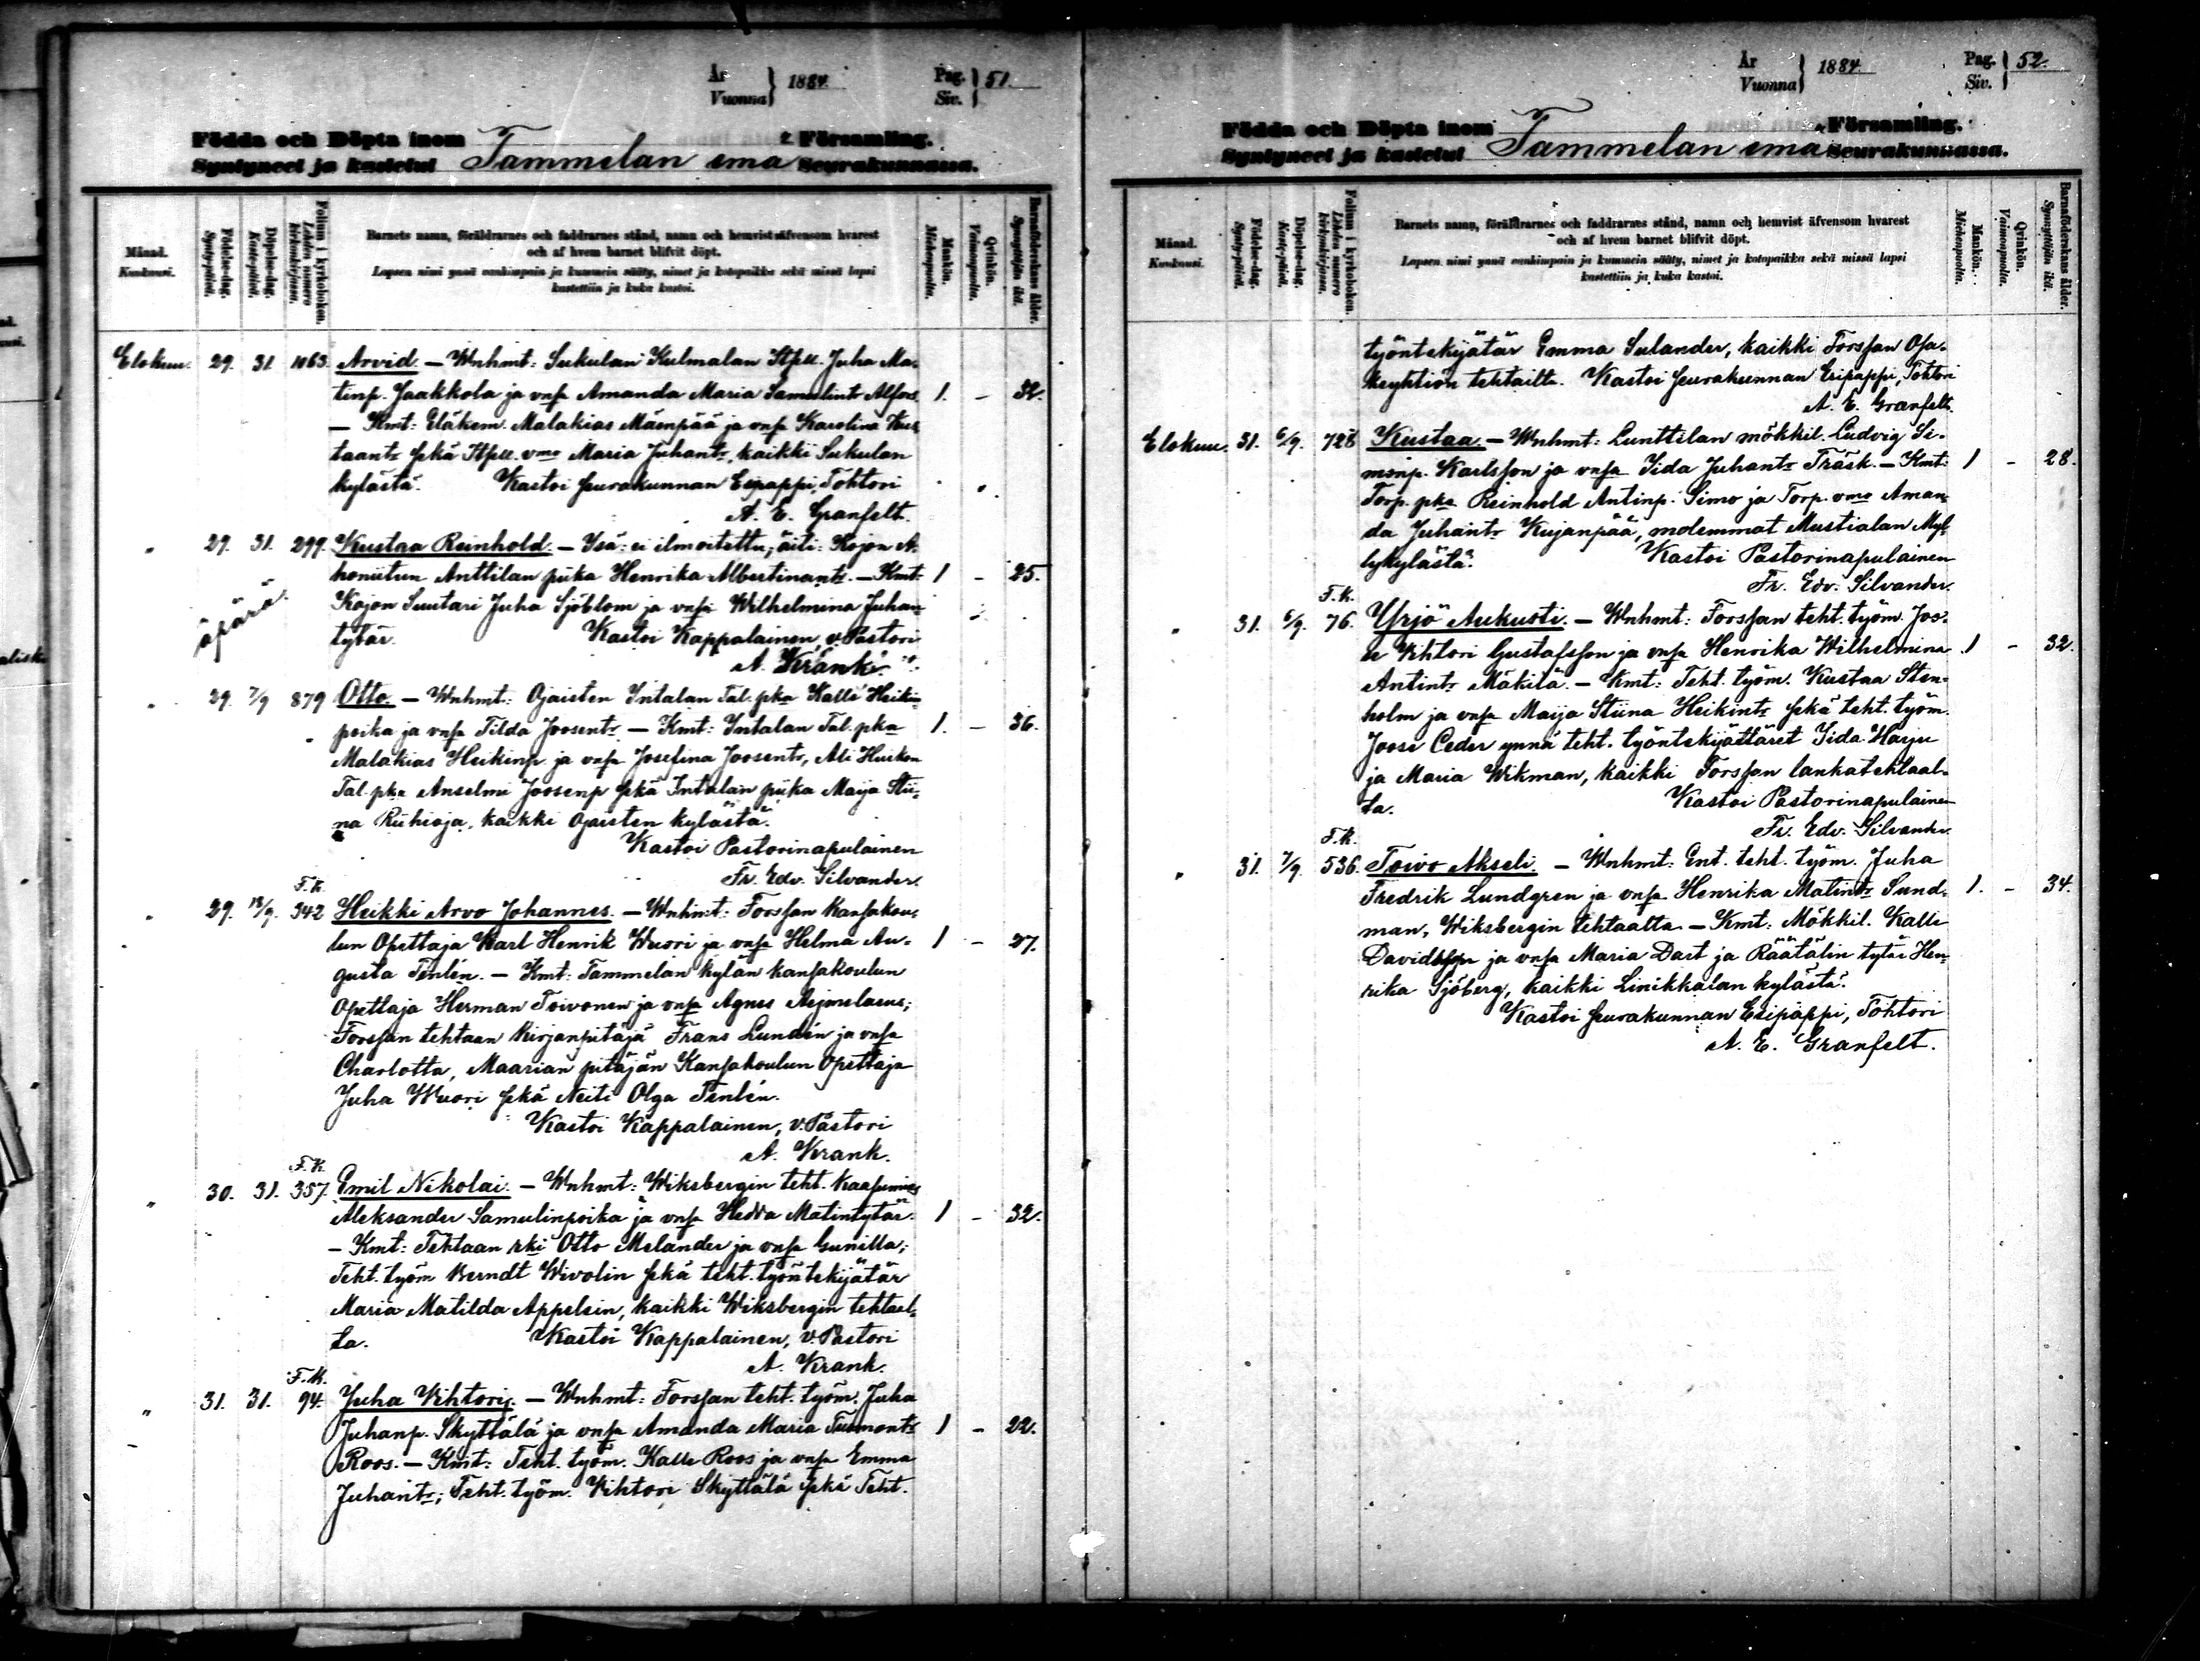 År
Vuonna } 1884.
Pag.
Siv. } 51.
Födda och Döpta inom Församling.
Syntyneet ja kastetut Tammelan ema Seurakunnassa.
Månad.
Kuukausi.
Födelse-dag.
Synty-päivä.
Döpelse-dag.
Kaste-päivä.
Folium i kyrkoboken.
Lehden numero
kirkonkirjassa.
Barnets namn, föräldrarnes och faddrarnes stånd, namn och hemvist äfvensom hvarest
och af hvem barnet blifvit döpt.
Lapsen nimi ynnä vanhimpain ja kummein sääty, nimet ja kotopaikka sekä missä lapsi
kastettiin ja kuka kastoi.
Mankön.
Miehenpuolta.
Qvinkön.
Vaimonpuolta.
Barnaföderskans ålder.
Synnyttäjän ikä.
Elokuu. 29. 31. 1063. Arvid. — Wnhmt: Sukulan Kulmalan Itsell. Juha Ma-
tinp. Jaakkola ja vnsa Amanda Maria Samulintr Alfors. 1. – 32.
— Kmt: Eläkem. Malakias Mäenpää ja vnsa Karolina Kus-
taantr sekä Itsell. vmo Maria Juhantr, kaikki Sukulan
kylästä. Kastoi seurakunnan Esipappi, Tohtori
A. E. Granfelt.
" 29. 31. 299. Kustaa Reinhold. — Isä: ei ilmoitettu; äiti: Kojon A-
honiitun Anttilan piika Henrika Albertinantr. — Kmt: 1 – 25.
äpärä.
Kojon Suutari Juha Sjöblom ja vnsa Wilhelmina Juhan-
tytär. Kastoi Kappalainen, v. Pastori
A. Krank.
" 29. 7/9 879 Otto. — Wnhmt: Ojaisten Intalan Tal. pka Kalle Heikin-
poika ja vnsa Tilda Joosentr — Kmt: Intalan Tal. pka 1. – 36.
Malakias Heikinp. ja vnsa Josefina Joosentr, Ali
Tal. pka Anselmi Joosenp sekä Intalan piika Maija Stii-
na Riihioja, kaikki Ojaisten kylästä.
Kastoi Pastorinapulainen
Fr. Edv. Silvander.
F.K.
" 29. 13/9. 342 Heikki Arvo Johannes. — Wnhmt: Forssan Kansakou-
lun Opettaja Karl Henrik Wuori ja vnsa Helma Au- 1 – 27.
gusta Tenlén. — Kmt: Tammelan kylän kansakoulun
Opettaja Herman Toivonen ja vnsa Agnes Aejmelaeus;
Forssan tehtaan Kirjanpitäjä Frans Lundén ja vnsa
Charlotta, Maarian pitäjän Kansakoulun Opettaja
Juha Wuori sekä Neiti Olga Tenlén.
Kastoi Kappalainen, v. Pastori
A. Krank.
F.K.
" 30. 31. 357. Emil Nikolai. — Wnhmt: Wiksbergin teht. Kaasumies
Aleksander Samulinpoika ja vnsa Hedda Matintytär. 1 – 32.
– Kmt: Tehtaan rki Otto Melander ja vnsa Gunilla;
Teht. työm Berndt Wivolin sekä teht. työntekijätär
Maria Matilda Appelsin, kaikki Wiksbergin tehtaal-
ta. Kastoi Kappalainen, v. Pastori
A. Krank.
F.K.
" 31. 31. 94. Juha Vihtori. — Wnhmt: Forssan teht. työm. Juha
Juhanp. Skyttälä ja vnsa Amanda Maria Tuomontr 1 – 22.
Roos. — Kmt: Teht. työm. Kalle Roos ja vnsa Emma
Juhantr; Teht. työm. Vihtori Skyttälä sekä Teht.
År
Vuonna } 1884.
Pag.
Siv. } 52.
Födda och Döpta inom Församling.
Syntyneet ja kastetut Tammelan ema Seurakunnassa.
Månad.
Kuukausi.
Födelse-dag.
Synty-päivä.
Döpelse-dag.
Kaste-päivä.
Folium i kyrkoboken.
Lehden numero
kirkonkirjassa.
Barnets namn, föräldrarnes och faddrarnes stånd, namn och hemvist äfvensom hvarest
och af hvem barnet blifvit döpt.
Lapsen nimi ynnä vanhimpain ja kummein sääty, nimet ja kotopaikka sekä missä lapsi
kastettiin ja kuka kastoi.
Mankön.
Miehenpuolta.
Qvinkön.
Vaimonpuolta.
Barnaföderskans ålder.
Synnyttäjän ikä.
työntekijätär Emma Sulander, kaikki Forssan Osa-
keyhtion tehtailta. Kastoi seurakunnan Esipappi, Tohtori
A. E. Granfelt.
Elokuu. 31. 6/9. 728 Kustaa. — Wnhmt: Lunttilan mökkil. Ludvig Si-
monp. Karlsson ja vnsa Iida Juhantr Träsk. — Kmt: 1 – 28.
Torp. pka Reinhold Antinp. Simo ja Torp. vmo Aman-
da Juhantr Kujanpää, molemmat Mustialan Myl-
lykylästä. Kastoi Pastorinapulainen
Fr. Edv. Silvander.
F.K.
" 31. 6/9. 76. Yrjö Aukusti. — Wnhmt: Forssan teht. työm. Joo-
se Vihtori Gustafsson ja vnsa Henrika Wilhelmina 1 – 32.
Antintr Mäkilä. — Kmt: Teht. työm. Kustaa Sten-
holm ja vnsa Maija Stiina Heikintr sekä teht. työm.
Joose Ceder ynnä teht. työntekijättäret Iida Harju
ja Maria Wikman, kaikki Forssan lankatehtaal-
ta. Kastoi Pastorinapulainen
Fr. Edv. Silvander.
F.K.
" 31. 7/9. 536. Toivo Akseli. — Wnhmt: Ent. teht. työm. Juha
Fredrik Lundgren ja vnsa Henrika Matintr Sund- 1. – 34.
man, Wiksbergin tehtaalta. — Kmt: Mökkil. Kalle
Davidsson ja vnsa Maria Dart ja Räätälin tytär Hen-
rika Sjöberg, kaikki Linikkalan kylästä.
Kastoi seurakunnan Esipappi, Tohtori
A. E. Granfelt.